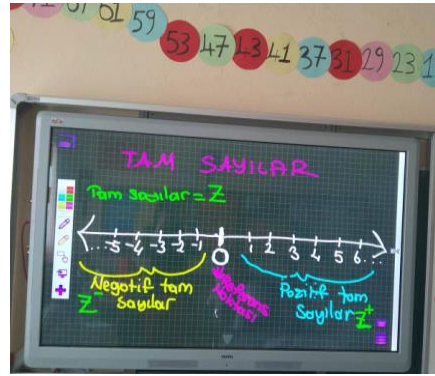 61 59 53 47 43 41 37 31 29 23
TAM SAYILAR
Tam sayılar = Z
...-5 -4 -3 -2 -1 0 1 2 3 4 5 6...
Negatif tam
Sayılar
Z⁻
Referans
Noktası
Pozitif tam
Sayılar Z⁺